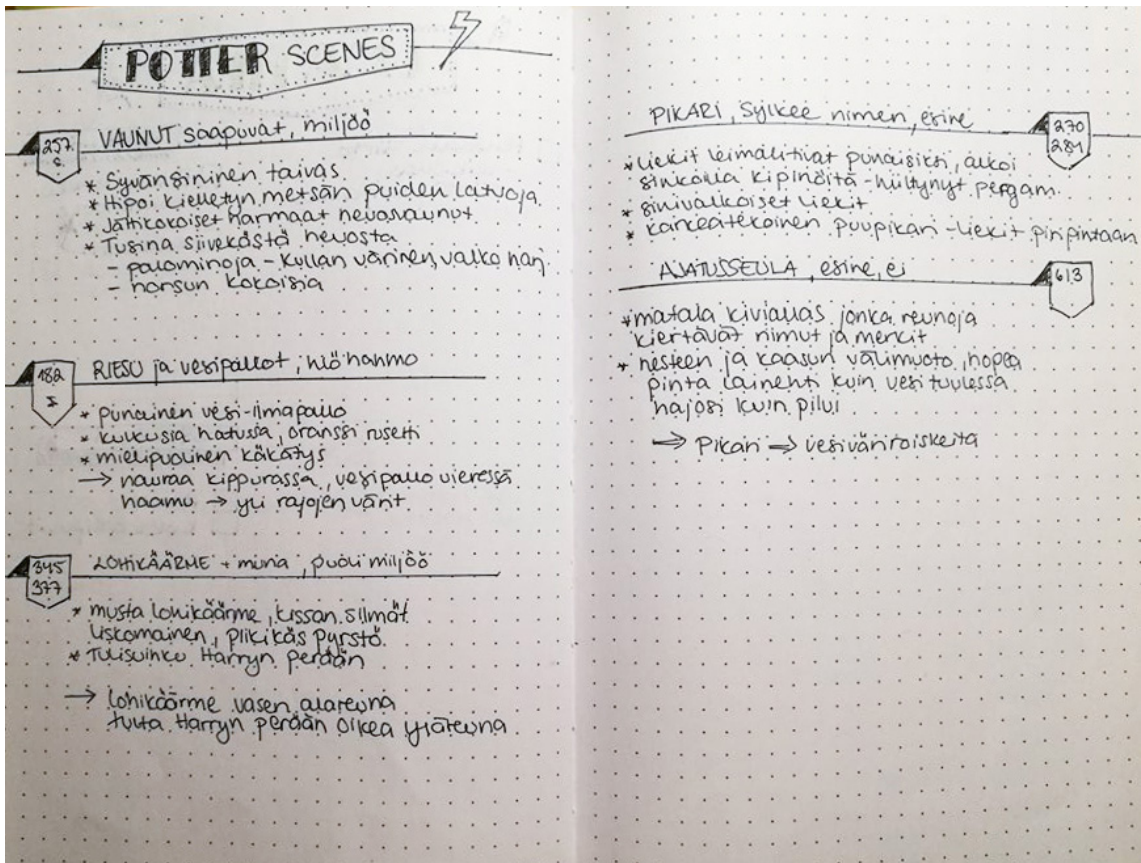 POTTER SCENES
257
s.
VAUNUT saapuvat, miljöö
* Syvänsininen taivas
* Hipoi kielletyn metsän puiden latvoja
* Jättikokoiset harmaat hevosvaunut
* Tusina siivekästä hevosta
- palominoja - kullan värinen, valko harj.
- norsun kokoisia
182
RIESU ja vesipallot, hlö hahmo
* punainen vesi-ilmapallo
* kulkusia hatussa, oranssi rusetti
* mielipuolinen käkätys
→ nauraa kippurassa, vesipallo vieressä
haamu → yli rajojen värit
345
377
LOHIKÄÄRME + muna, puoli miljöö
* musta lohikäärme, kissan silmät
liskomainen, piikikäs pyrstö
* Tulisuihku Harryn perään
→ lohikäärme vasen alareuna
tulta Harryn perään oikea yläreuna
PIKARI, sylkee nimen, esine
270
281
* Liekit leimahtivat punaisiksi, alkoi
sinkoilla kipinöitä - hiiltynyt pergam.
* sinivalkoiset liekit
* karkeatekoinen puupikari - liekit piripintaan
AJATUSSEULA, esine, ei
613
* matala kiviallas jonka reunoja
kiertävät riimut ja merkit
* nesteen ja kaasun välimuoto, hopea
pinta lainehti kuin vesi tuulessa
hajosi kuin pilvi
⇒ Pikari ⇒ vesiväriroiskeita